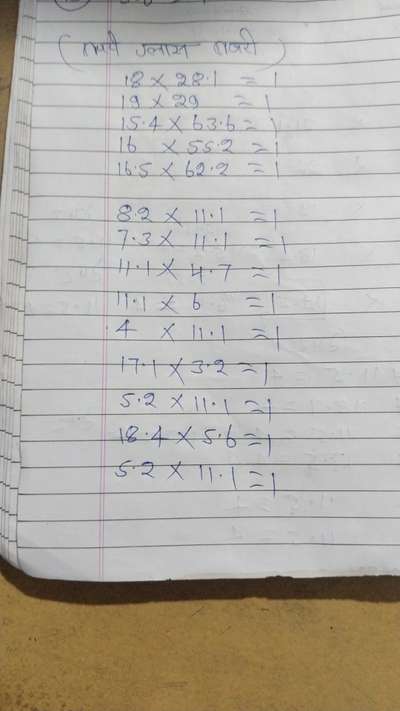 18 × 28.1 = 1
19 × 29 = 1
15.4 × 63.6 = 1
16 × 55.2 = 1
16.5 × 62.2 = 1
8.2 × 11.1 = 1
7.3 × 11.1 = 1
11.1 × 4.7 = 1
11.1 × 6 = 1
4 × 11.1 = 1
17.1 × 3.2 = 1
5.2 × 11.1 = 1
18.4 × 5.6 = 1
5.2 × 11.1 = 1